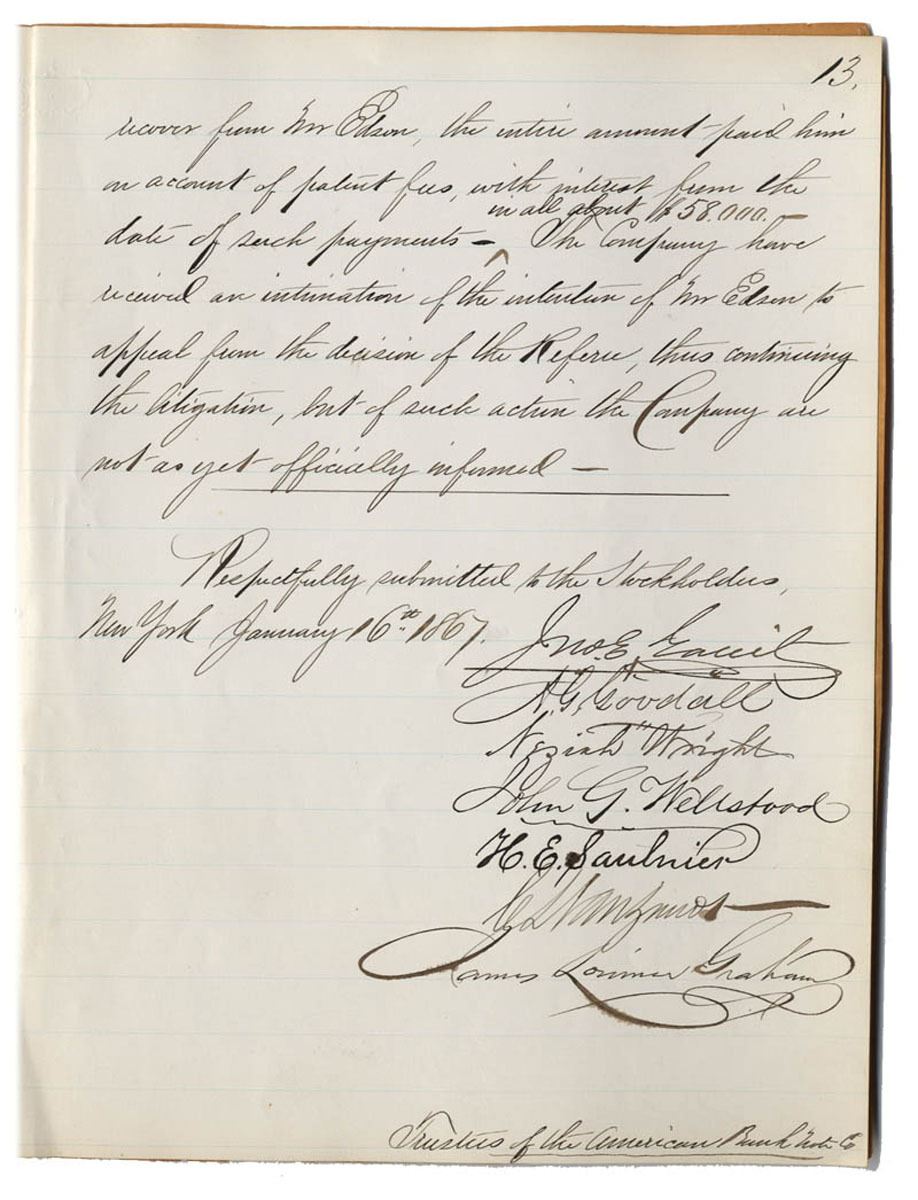 13.
recover from Mr Edson, the entire amount paid him
on account of patent fees, with interest from the
in all about $58.000. —
date of such payments — The Company have
received an intimation of the intention of Mr Edson to
appeal from the decision of the Referee, thus continuing
the litigation, but of such action the Company are
not as yet officially informed —
Respectfully submitted to the Stockholders,
New York January 16th 1867.
Jno. E. Gavit
A. G. Goodall
Neziah Wright
John G. Wellstood
H. E. Saulnier
James Lorimer Graham
Trustees of the American Bank Note Co